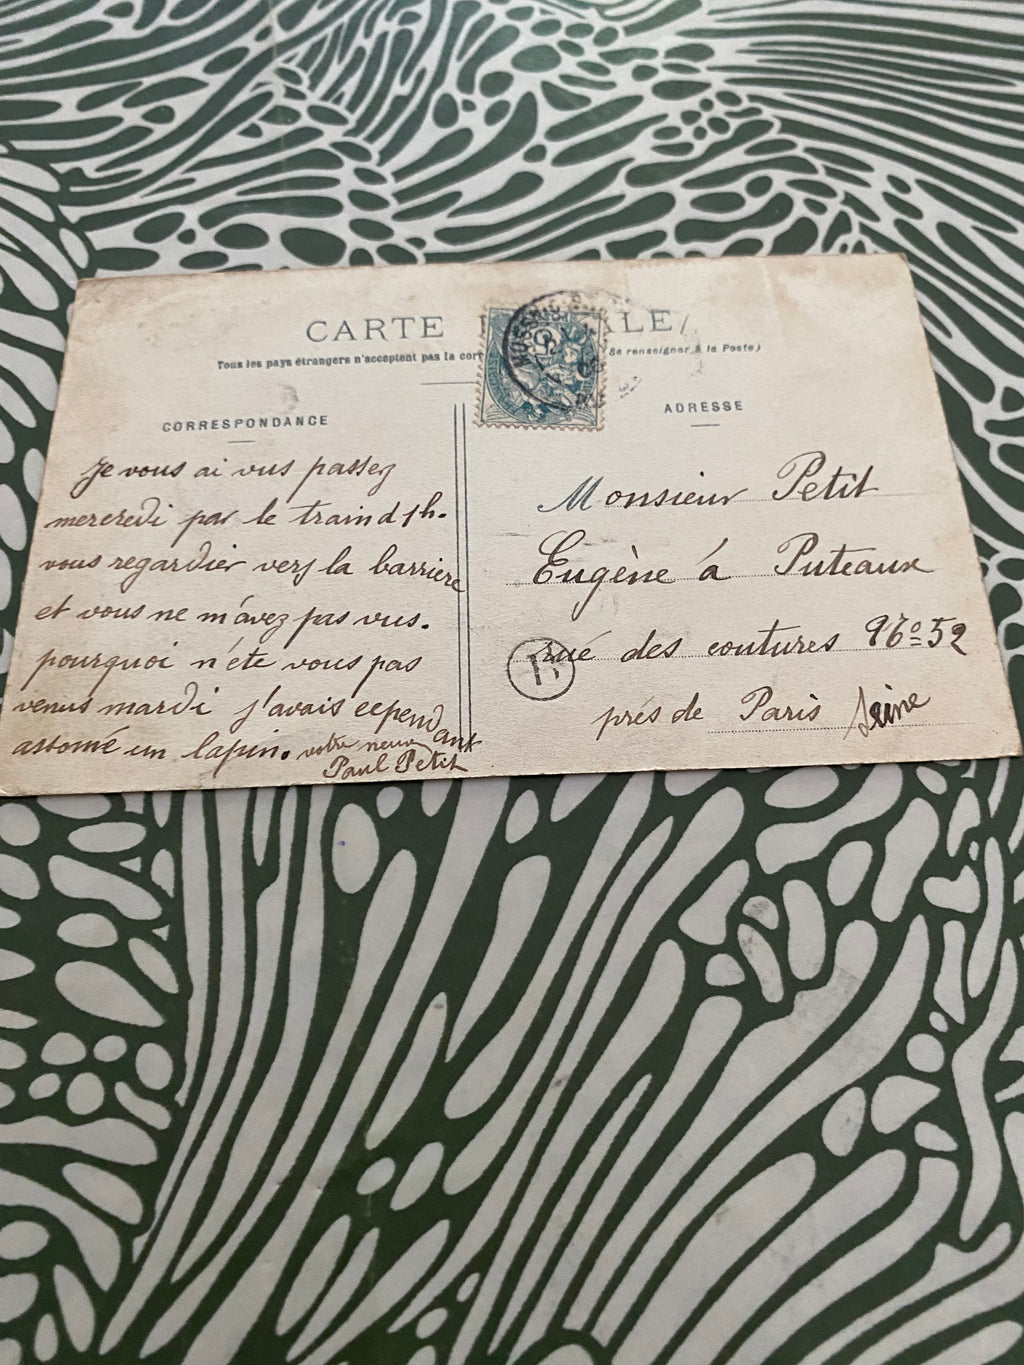 CARTE ALE
Tous les pays étrangers n'acceptent pas la cort Se renseigner à la Poste)
CORRESPONDANCE
Je vous ai vus passez
mercredi par le train d 1h.
vous regardier vers la barriere
et vous ne m'avez pas vus.
pourquoi n'éte vous pas
venus mardi j'avais cependant
assomé un lapin. votre neuveu
Paul Petit
ADRESSE
Monsieur Petit
Eugène à Puteaux
rue des coutures No 52
prés de Paris Seine